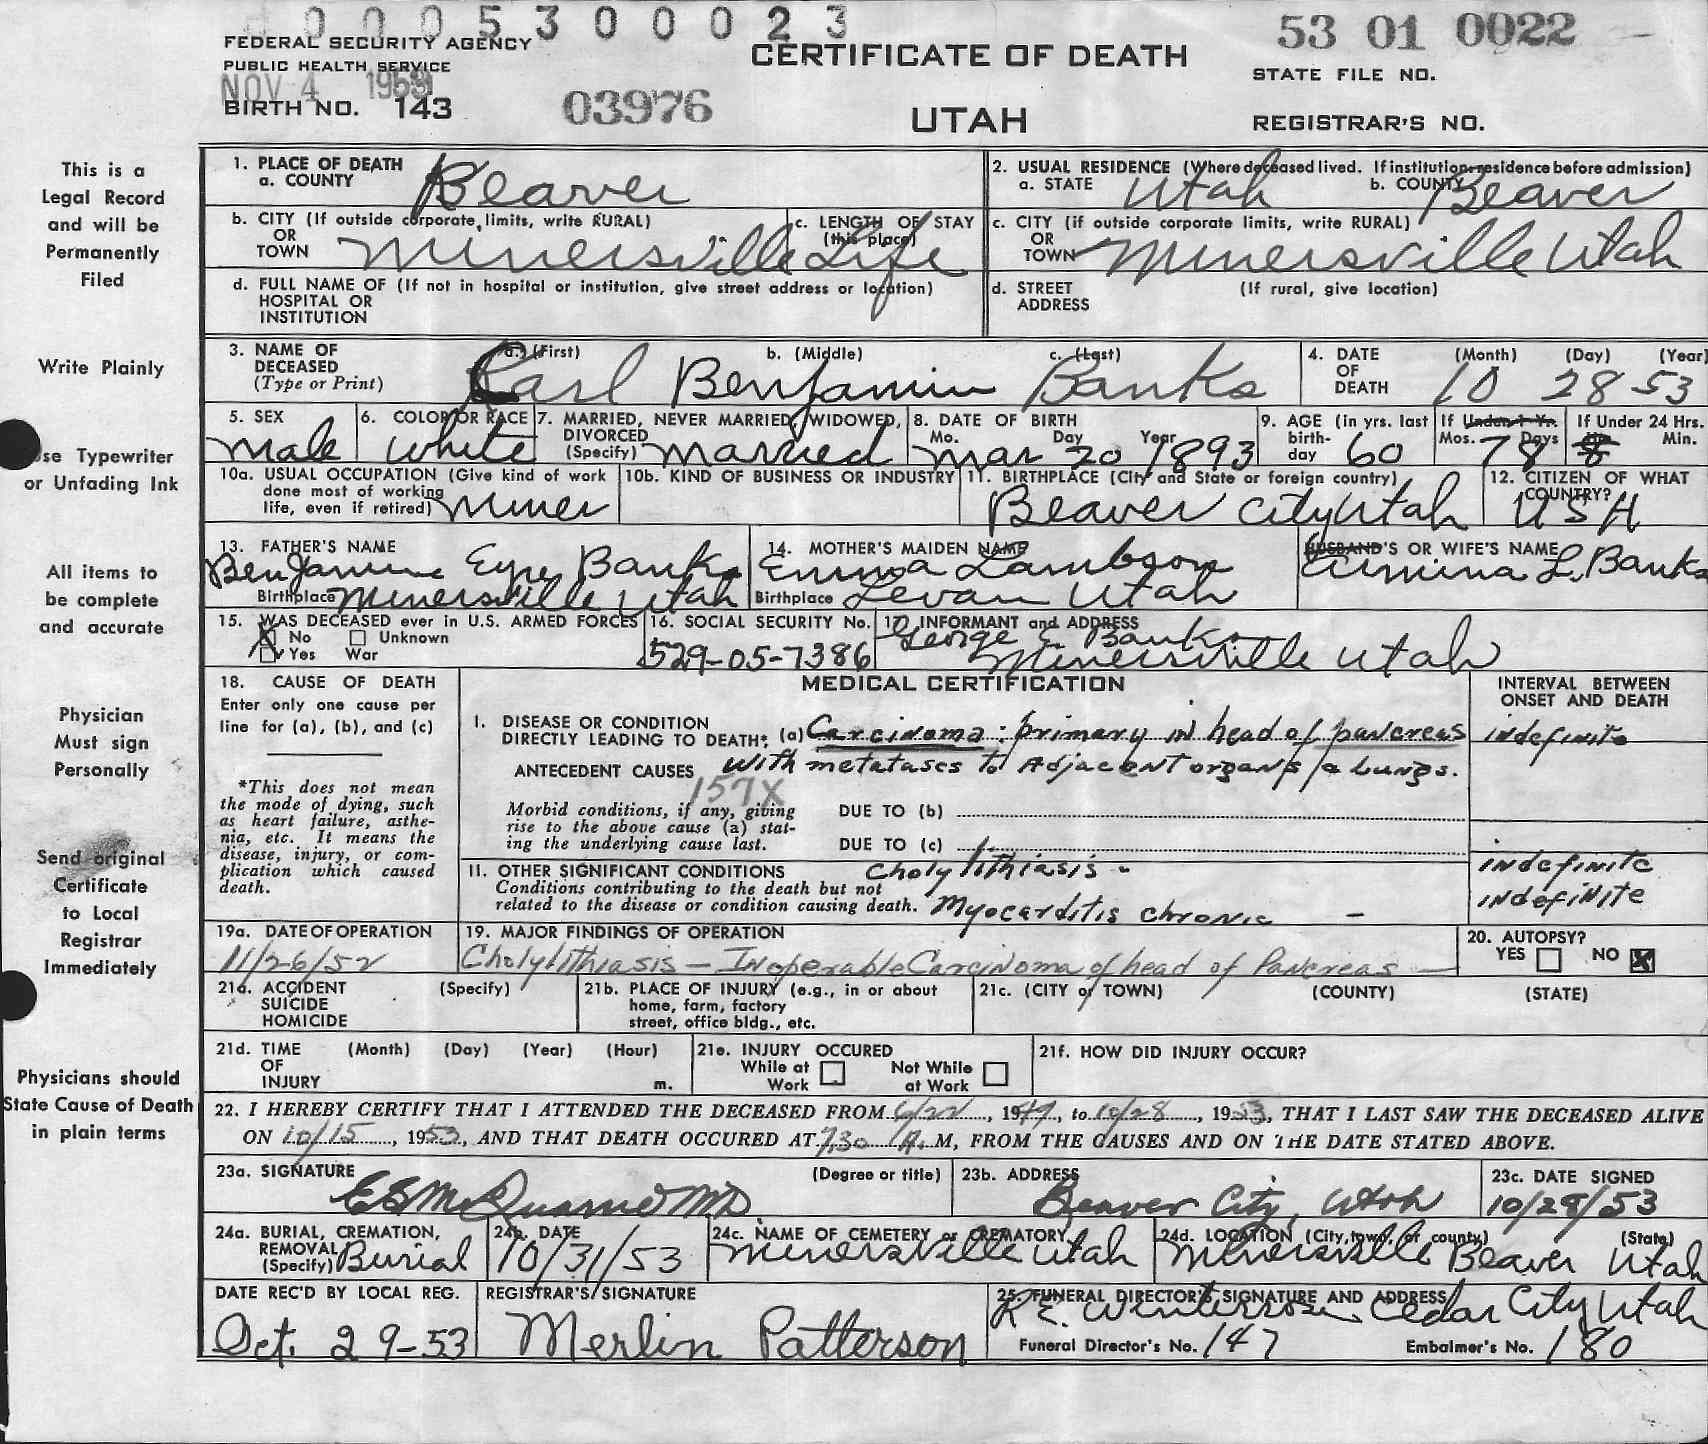 0005300023
53 01 0022
FEDERAL SECURITY AGENCY
PUBLIC HEALTH SERVICE
NOV 4 1953
BIRTH NO. 143
03976
CERTIFICATE OF DEATH
UTAH
STATE FILE NO.
REGISTRAR'S NO.
This is a
Legal Record
and will be
Permanently
Filed
Write Plainly
Use Typewriter
or Unfading Ink
All items to
be complete
and accurate
Physician
Must sign
Personally
Send original
Certificate
to Local
Registrar
Immediately
Physicians should
State Cause of Death
in plain terms
1. PLACE OF DEATH
a. COUNTY Beaver
2. USUAL RESIDENCE (Where deceased lived. If institution-residence before admission)
a. STATE Utah b. COUNTY Beaver
b. CITY (If outside corporate limits, write RURAL)
OR
TOWN Minersville
c. LENGTH OF STAY
(this place) Life
c. CITY (if outside corporate limits, write RURAL)
OR
TOWN Minersville Utah
d. FULL NAME OF (If not in hospital or institution, give street address or location)
HOSPITAL OR
INSTITUTION
d. STREET (If rural, give location)
ADDRESS
3. NAME OF
DECEASED
(Type or Print)
a. (First) b. (Middle) c. (Last)
Carl Benjamin Banks
4. DATE
OF
DEATH
(Month) (Day) (Year)
10 28 53
5. SEX
Male
6. COLOR OR RACE
White
7. MARRIED, NEVER MARRIED, WIDOWED,
DIVORCED
(Specify) Married
8. DATE OF BIRTH
Mo. Day Year
Mar 20 1893
9. AGE (in yrs. last
birth-
day 60
If Under 1 Yr.
Mos. Days
7 8
If Under 24 Hrs.
Min.
8
10a. USUAL OCCUPATION (Give kind of work
done most of working
life, even if retired) Miner
10b. KIND OF BUSINESS OR INDUSTRY
11. BIRTHPLACE (City and State or foreign country)
Beaver City Utah
12. CITIZEN OF WHAT
COUNTRY?
USA
13. FATHER'S NAME
Benjamine Eyre Banks
Birthplace Minersville Utah
14. MOTHER'S MAIDEN NAME
Emma Lambson
Birthplace Levan Utah
HUSBAND'S OR WIFE'S NAME
Armina L. Banks
15. WAS DECEASED ever in U.S. ARMED FORCES
X No Unknown
Yes War
16. SOCIAL SECURITY No.
529-05-7386
17. INFORMANT and ADDRESS
George E Banks
Minersville Utah
18. CAUSE OF DEATH
Enter only one cause per
line for (a), (b), and (c)
*This does not mean
the mode of dying, such
as heart failure, asthe-
nia, etc. It means the
disease, injury, or com-
plication which caused
death.
MEDICAL CERTIFICATION
INTERVAL BETWEEN
ONSET AND DEATH
I. DISEASE OR CONDITION
DIRECTLY LEADING TO DEATH*, (a) Carcinoma: primary in head of pancreas
indefinite
ANTECEDENT CAUSES with metatases to Adjacent organs / a Lungs.
157X
Morbid conditions, if any, giving
rise to the above cause (a) stat-
ing the underlying cause last.
DUE TO (b)
DUE TO (c)
11. OTHER SIGNIFICANT CONDITIONS Cholylithiasis -
indefinite
Conditions contributing to the death but not
related to the disease or condition causing death. Myocarditis chronic -
indefinite
19a. DATE OF OPERATION
11/26/52
19. MAJOR FINDINGS OF OPERATION
Cholylithiasis - Inoperable Carcinoma of head of Pancreas
20. AUTOPSY?
YES NO X
21a. ACCIDENT (Specify)
SUICIDE
HOMICIDE
21b. PLACE OF INJURY (e.g., in or about
home, farm, factory
street, office bldg., etc.
21c. (CITY or TOWN) (COUNTY) (STATE)
21d. TIME (Month) (Day) (Year) (Hour)
OF
INJURY m.
21e. INJURY OCCURED
While at Not While
Work at Work
21f. HOW DID INJURY OCCUR?
22. I HEREBY CERTIFY THAT I ATTENDED THE DECEASED FROM 6/22, 1947, to 10/28, 1953, THAT I LAST SAW THE DECEASED ALIVE
ON 10/15, 1953, AND THAT DEATH OCCURED AT 7:30 A. M, FROM THE CAUSES AND ON THE DATE STATED ABOVE.
23a. SIGNATURE (Degree or title)
MD
23b. ADDRESS
Beaver City, Utah
23c. DATE SIGNED
10/29/53
24a. BURIAL, CREMATION,
REMOVAL
(Specify) Burial
24b. DATE
10/31/53
24c. NAME OF CEMETERY or CREMATORY
Minersville Utah
24d. LOCATION (City, town, or county) (State)
Minersville Beaver Utah
DATE REC'D BY LOCAL REG.
Oct. 29-53
REGISTRAR'S SIGNATURE
Merlin Patterson
25. FUNERAL DIRECTOR'S SIGNATURE AND ADDRESS
R E. Winterrose Cedar City Utah
Funeral Director's No. 147 Embalmer's No. 180